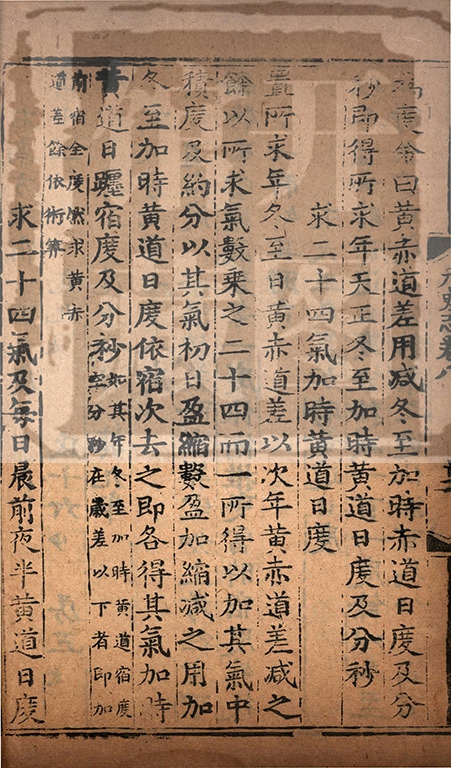 為度命曰黃赤道差用减冬至加時赤道日度及分
秒即得所求年天正冬至加時黃道日度及分秒
求二十四氣加時黃道日度
置所求年冬至日黃赤道差以次年黃赤道差减之
餘以所求氣數乘之二十四而一所得以加其氣中
積度及約分以其氣初日盈縮數盈加縮减之用加
冬至加時黃道日度依宿次去之即各得其氣加時
黃道日躔宿度及分秒如其年冬至加時黃道宿度
空分秒在歲差以下者即加
前宿全度然求黃赤
道差餘依術筭
求二十四氣及每日晨前夜半黃道日度